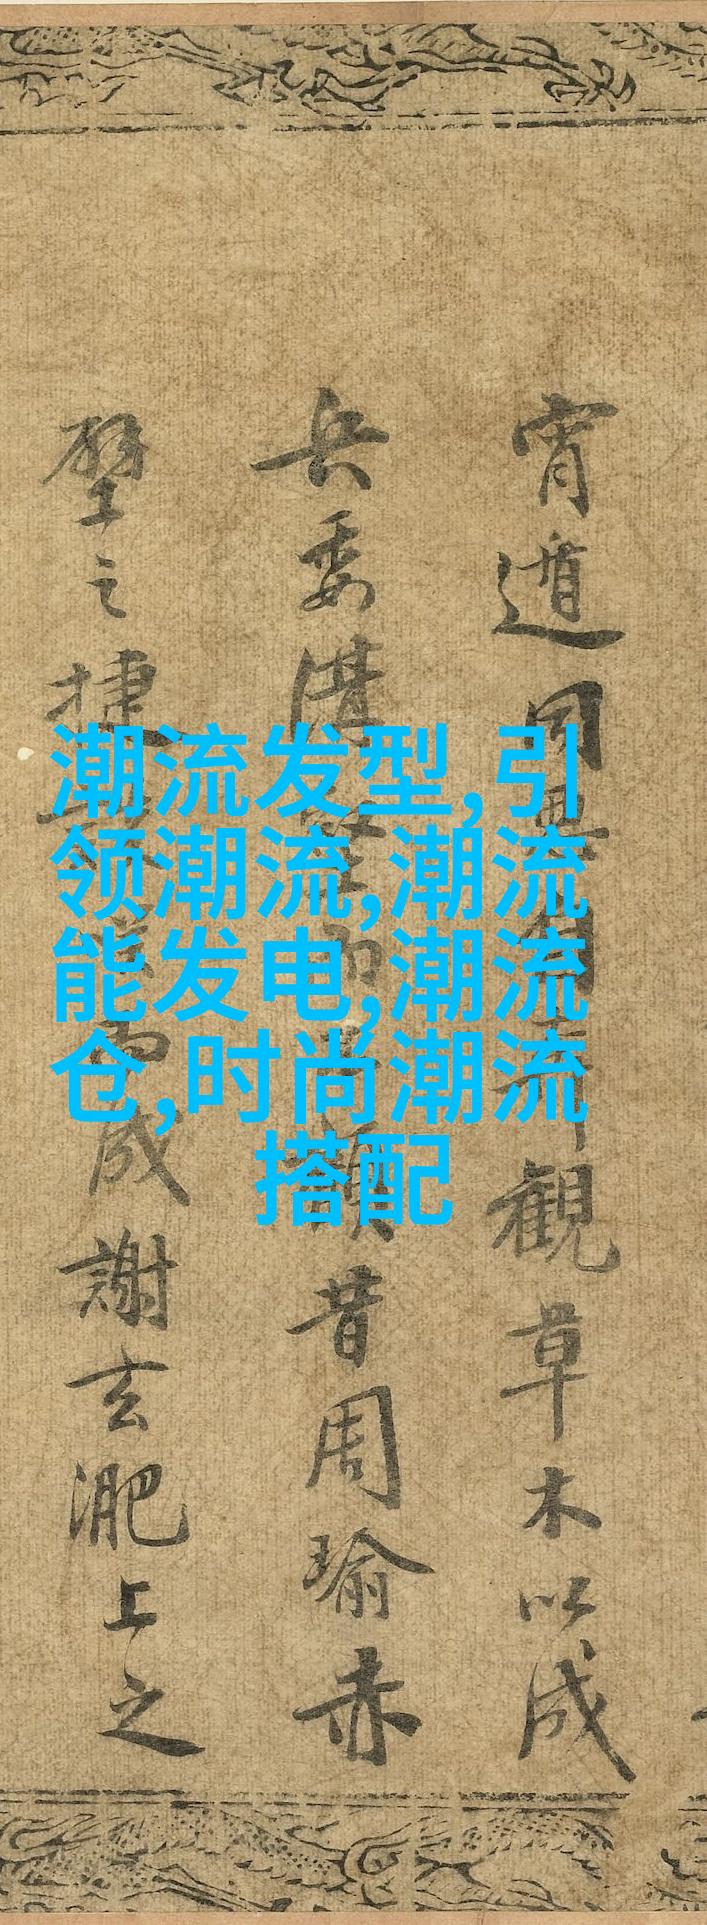 潮流发型,引
领潮流,潮流
能发电,潮流
仓,时尚潮流
搭配
宵遁同 觀草木以成
兵委溝 顧昔周瑜赤
壁之捷 而成謝玄淝上之